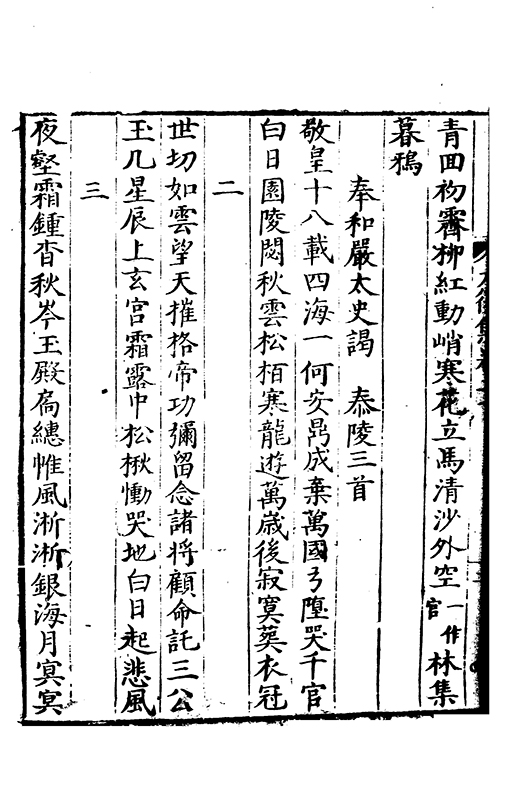 青田初霽柳紅動峭寒花立馬清沙外空一作官林集
暮鴉
奉和嚴太史謁 泰陵三首
敬皇十八載四海一何安鼎成棄萬國弓墮哭千官
白日園陵閟秋雲松栢寒龍遊萬歲後寂寞葬衣冠
二
世切如雲望天摧格帝功彌留念諸將顧命託三公
玉几星辰上玄宮霜露中松楸慟哭地白日起悲風
三
夜壑霜鍾杳秋岑玉殿扃繐帷風淅淅銀海月冥冥